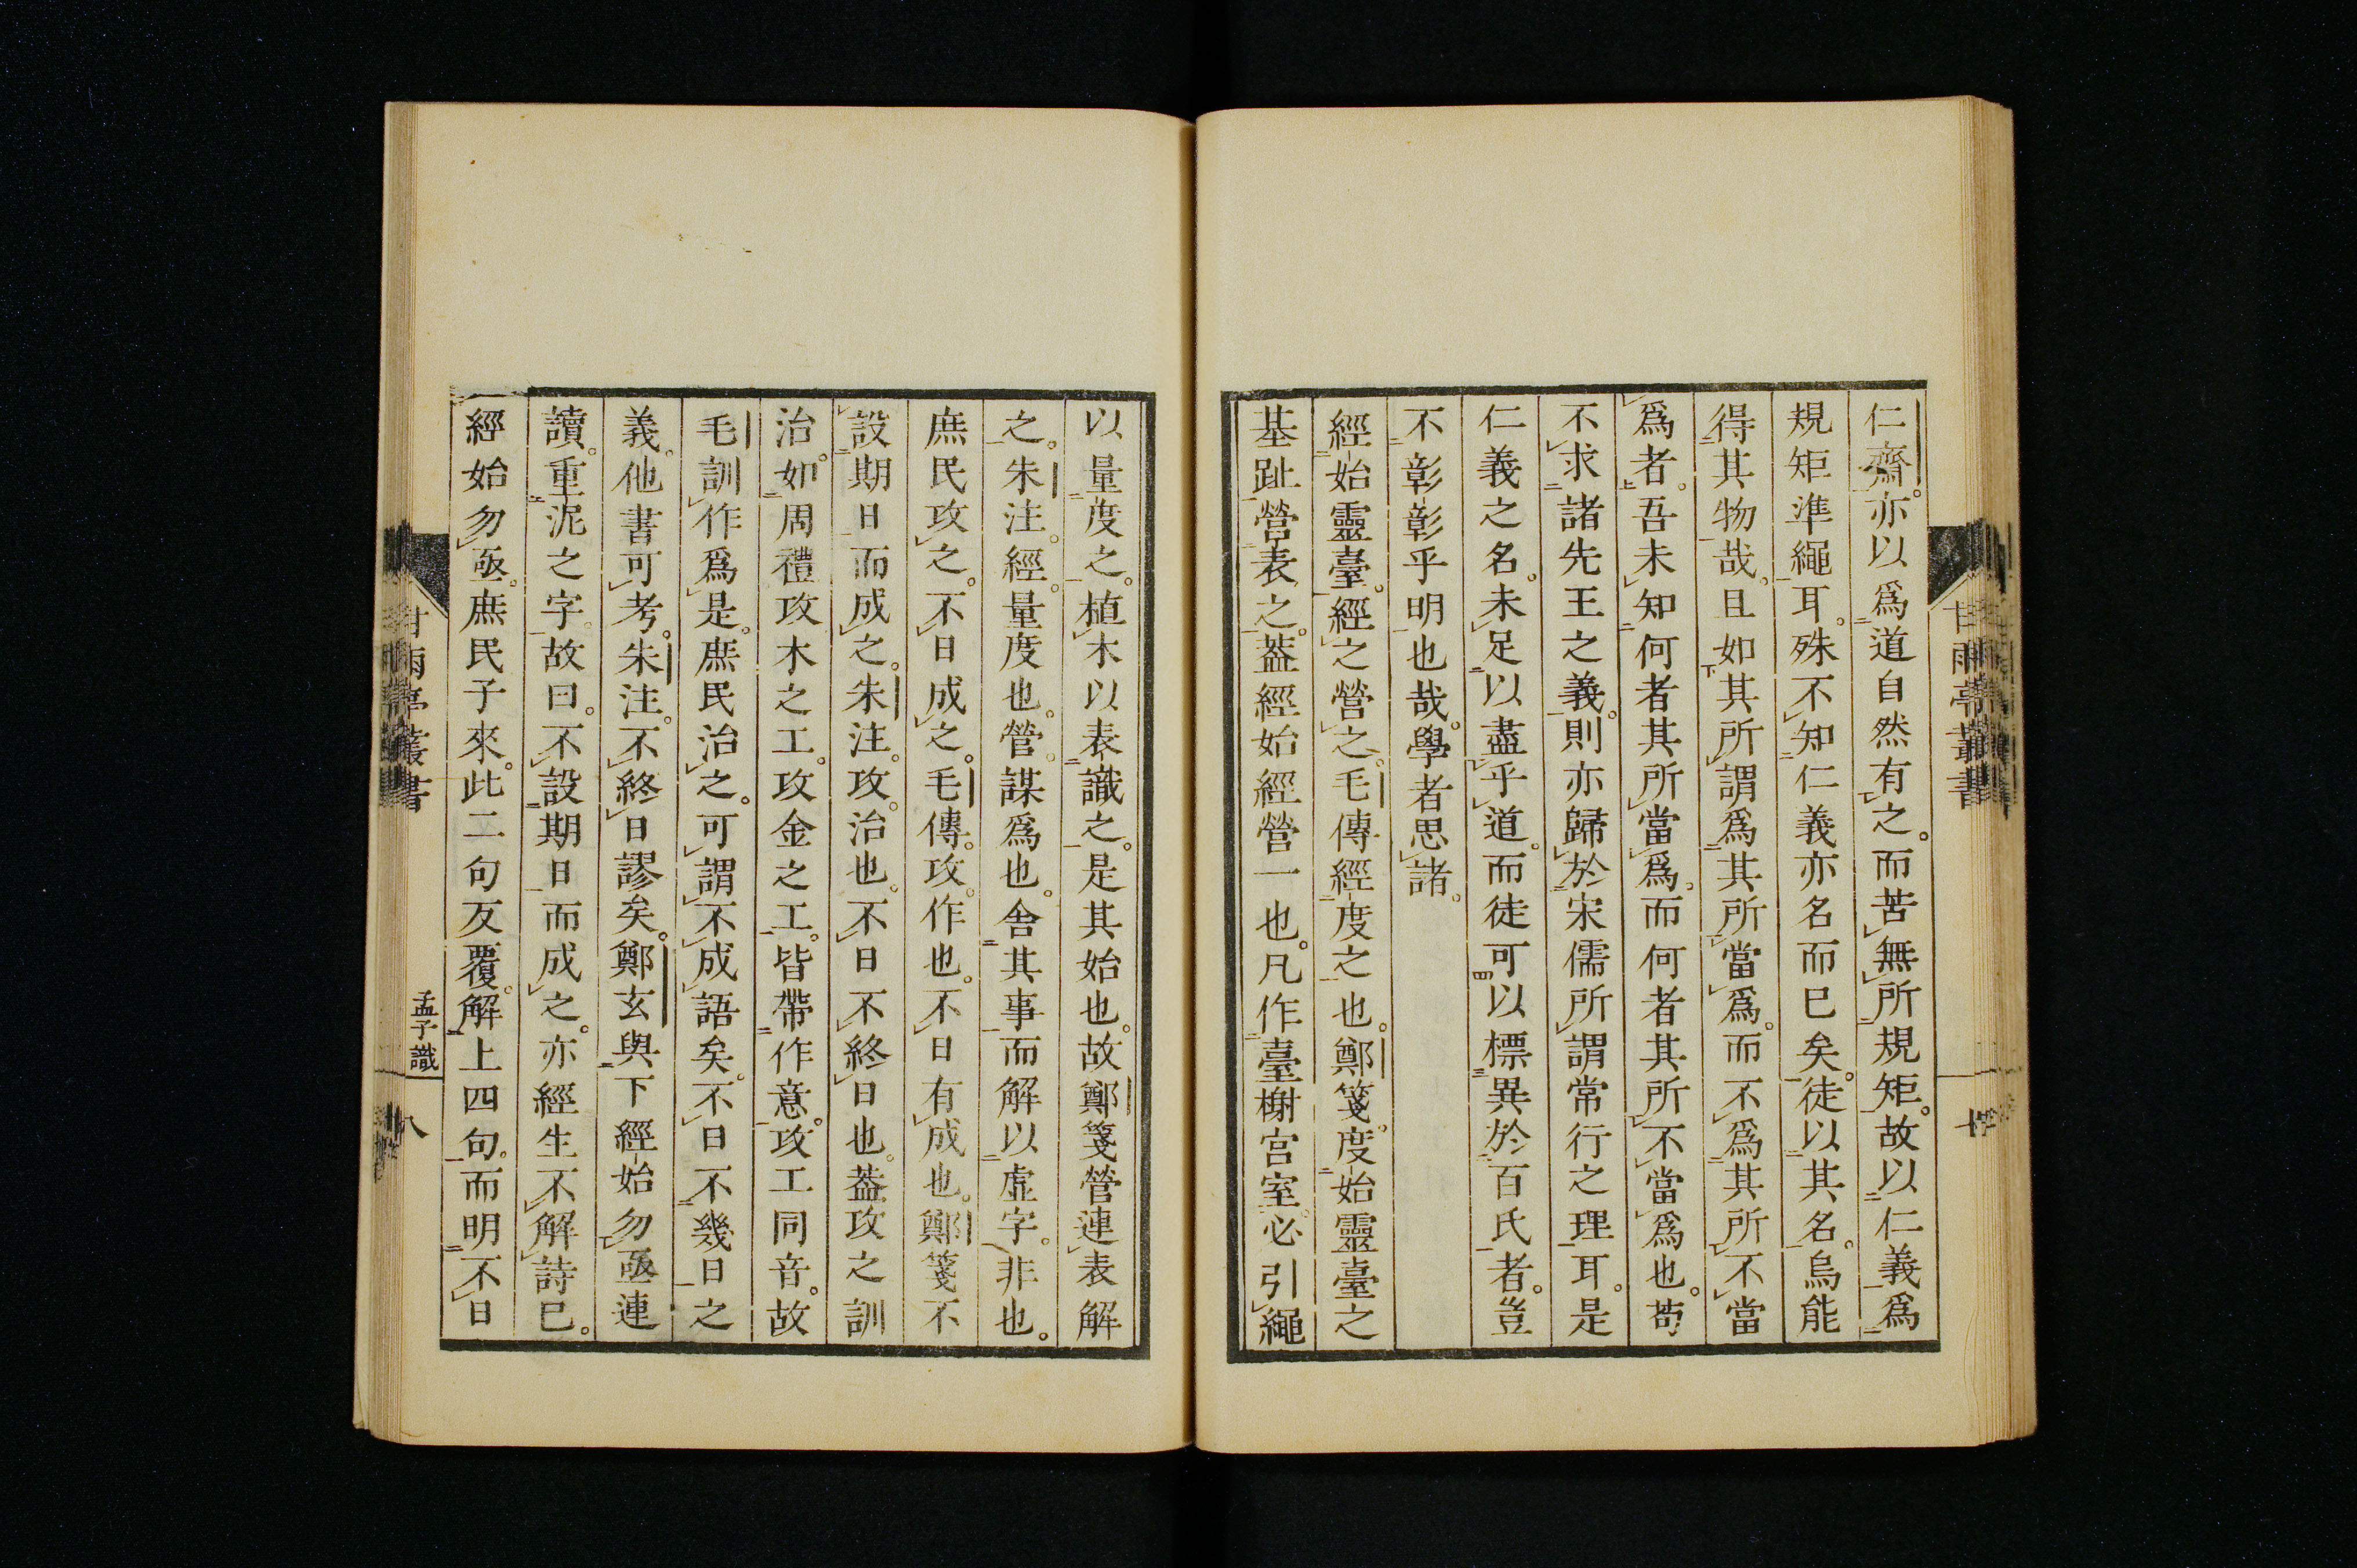 仁齋。亦以爲道自然有之。而苦無所規矩。故以仁義爲
規矩準繩耳。殊不知仁義亦名而已矣。徒以其名。烏能
得其物哉。且如其所謂爲其所當爲。而不爲其所不當
爲者。吾未知何者其所當爲。而何者其所不當爲也。苟
不求諸先王之義。則亦歸於宋儒所謂常行之理耳。是
仁義之名。未足以盡乎道。而徒可以標異於百氏者。豈
不彰彰乎明也哉。學者思諸。
經始靈臺。經之營之。毛傳經度之也。鄭箋。度始靈臺之
基趾。營表之。葢經始經營一也。凡作臺榭宮室。必引繩
以量度之。植木以表識之。是其始也。故鄭箋營連表解
之。朱注。經。量度也。營。謀爲也。舍其事而解以虛字。非也。
庶民攻之。不日成之。毛傳。攻。作也。不日有成也。鄭箋不
設期日而成之。朱注。攻。治也。不日不終日也。葢攻之訓
治。如周禮攻木之工。攻金之工。皆帶作意。攻工同音。故
毛訓作爲是。庶民治之。可謂不成語矣。不日不幾日之
義。他書可考。朱注。不終日謬矣。鄭玄與下經始勿亟連
讀。重泥之字。故曰。不設期日而成之。亦經生不解詩已。
經始勿亟。庶民子來。此二句反覆。解上四句。而明不日
甘雨亭叢書
孟子識
八
甘雨亭叢書